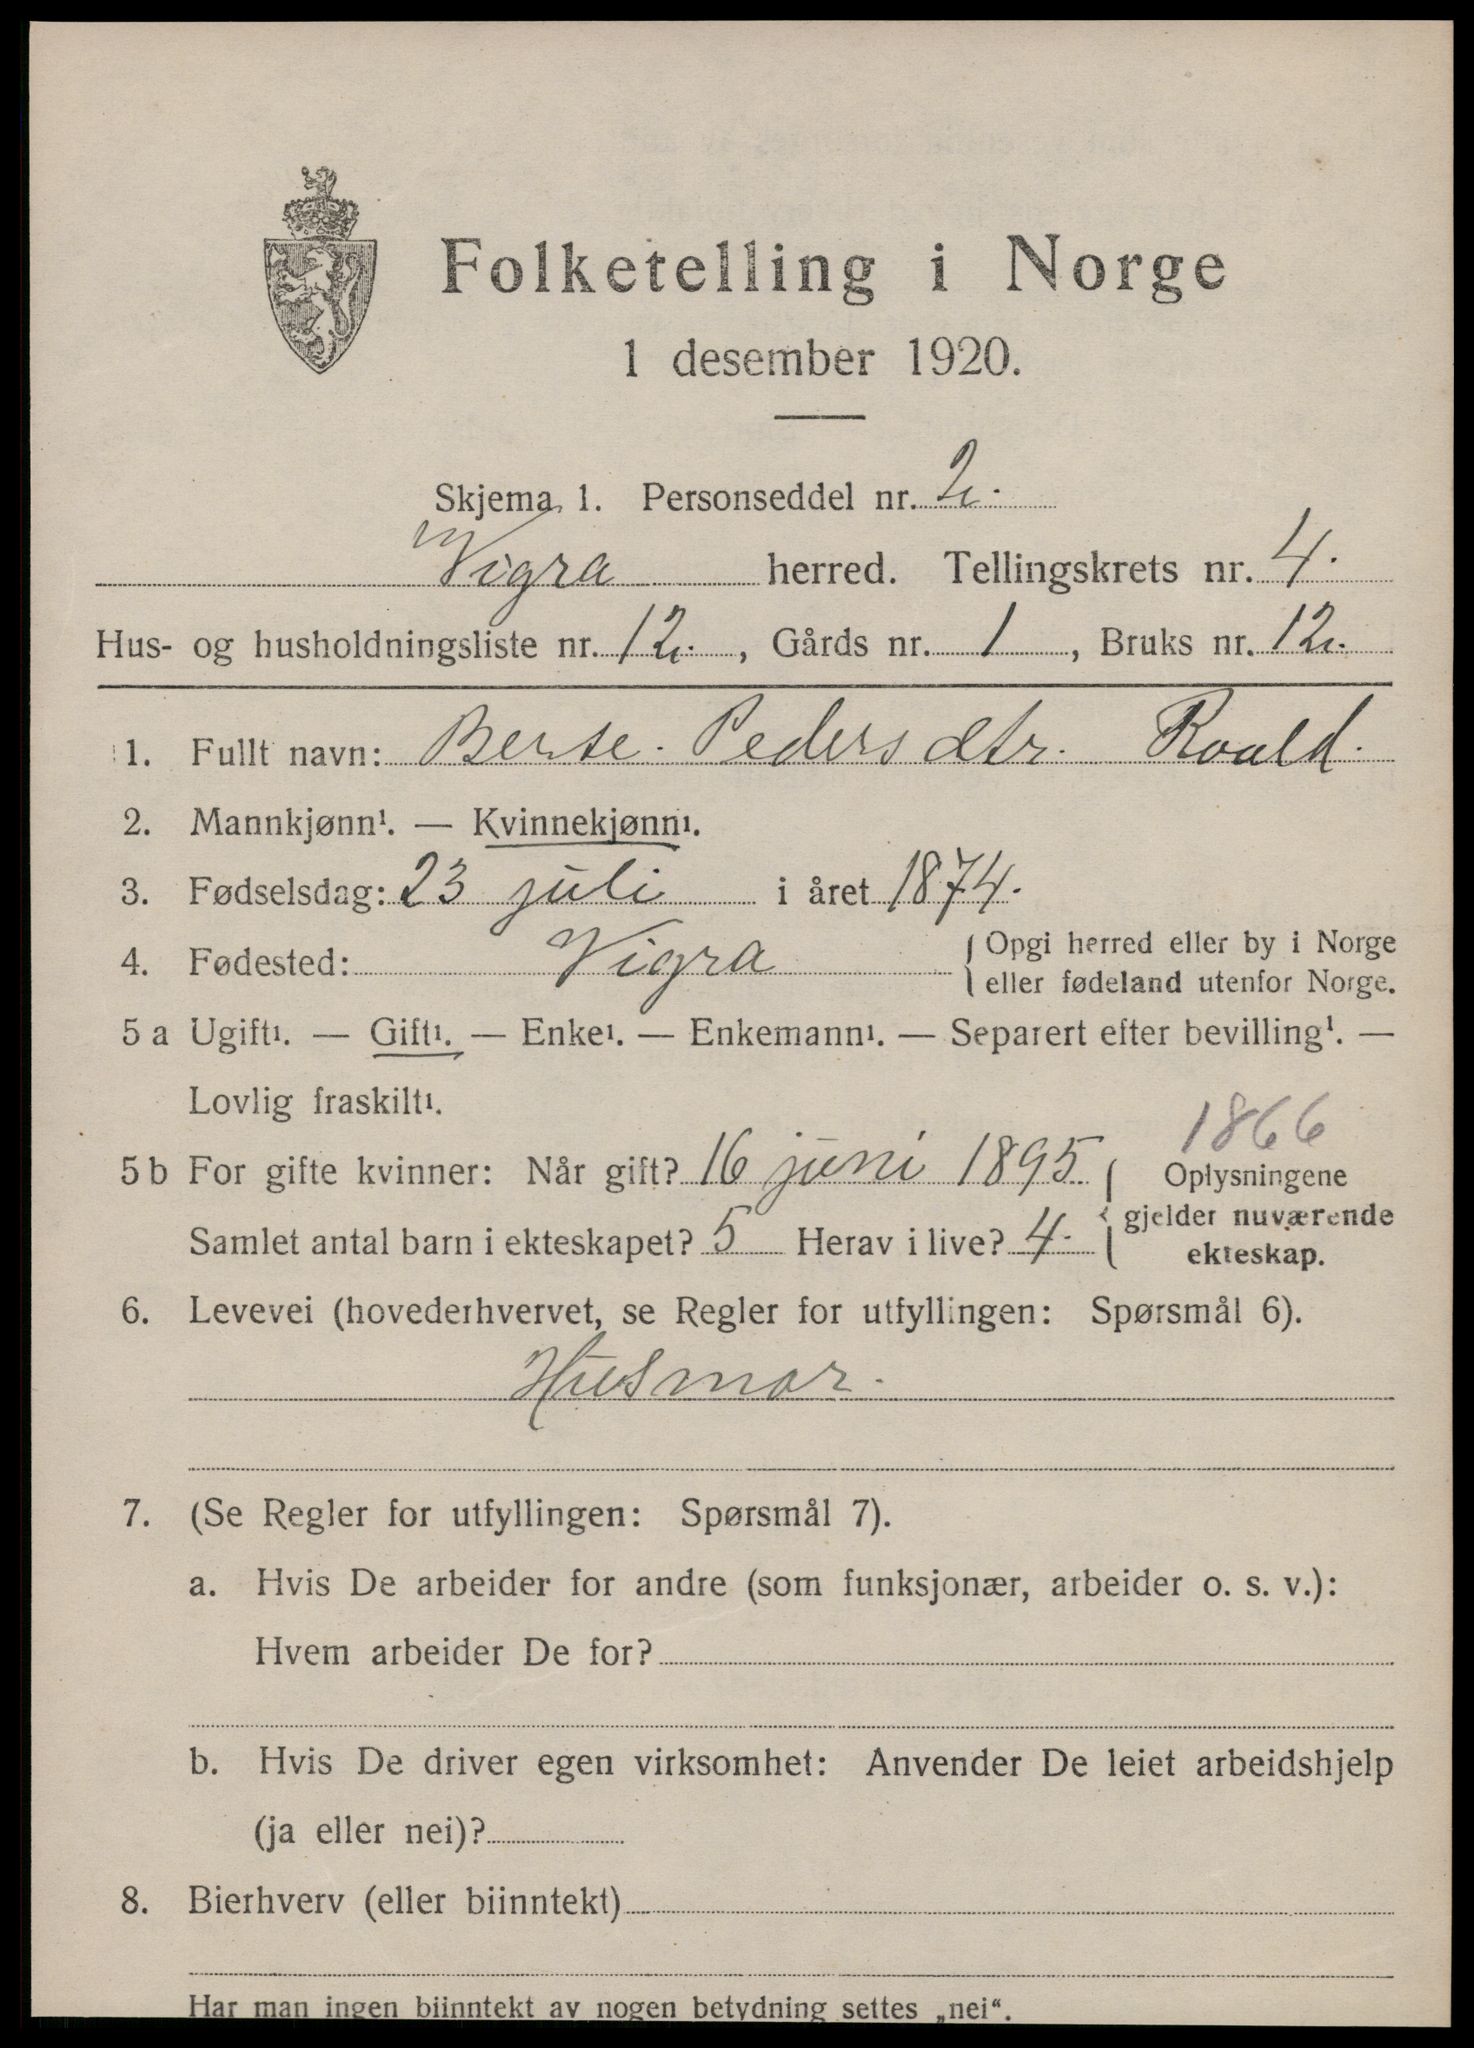 Folketelling i Norge
1 desember 1920.
Skjema 1. Personseddel nr. 2.
Vigra herred. Tellingskrets nr. 4.
Hus- og husholdningsliste nr. 12., Gårds nr. 1, Bruks nr. 12.
1. Fullt navn: Berte. Pedersdtr. Roald.
2. Mannkjønn¹. — Kvinnekjønn¹.
3. Fødselsdag: 23 juli i året 1874.
4. Fødested: Vigra { Opgi herred eller by i Norge
eller fødeland utenfor Norge.
5 a Ugift¹. — Gift¹. — Enke¹. — Enkemann¹. — Separert efter bevilling¹. —
Lovlig fraskilt¹.
1866
5 b For gifte kvinner: Når gift? 16 juni 1895 { Oplysningene
gjelder nuværende
Samlet antal barn i ekteskapet? 5 Herav i live? 4.
ekteskap.
6. Levevei (hovederhvervet, se Regler for utfyllingen: Spørsmål 6).
Husmor.
7. (Se Regler for utfyllingen: Spørsmål 7).
a. Hvis De arbeider for andre (som funksjonær, arbeider o. s. v.):
Hvem arbeider De for?
b. Hvis De driver egen virksomhet: Anvender De leiet arbeidshjelp
(ja eller nei)?
8. Bierhverv (eller biinntekt)
Har man ingen biinntekt av nogen betydning settes „nei“.